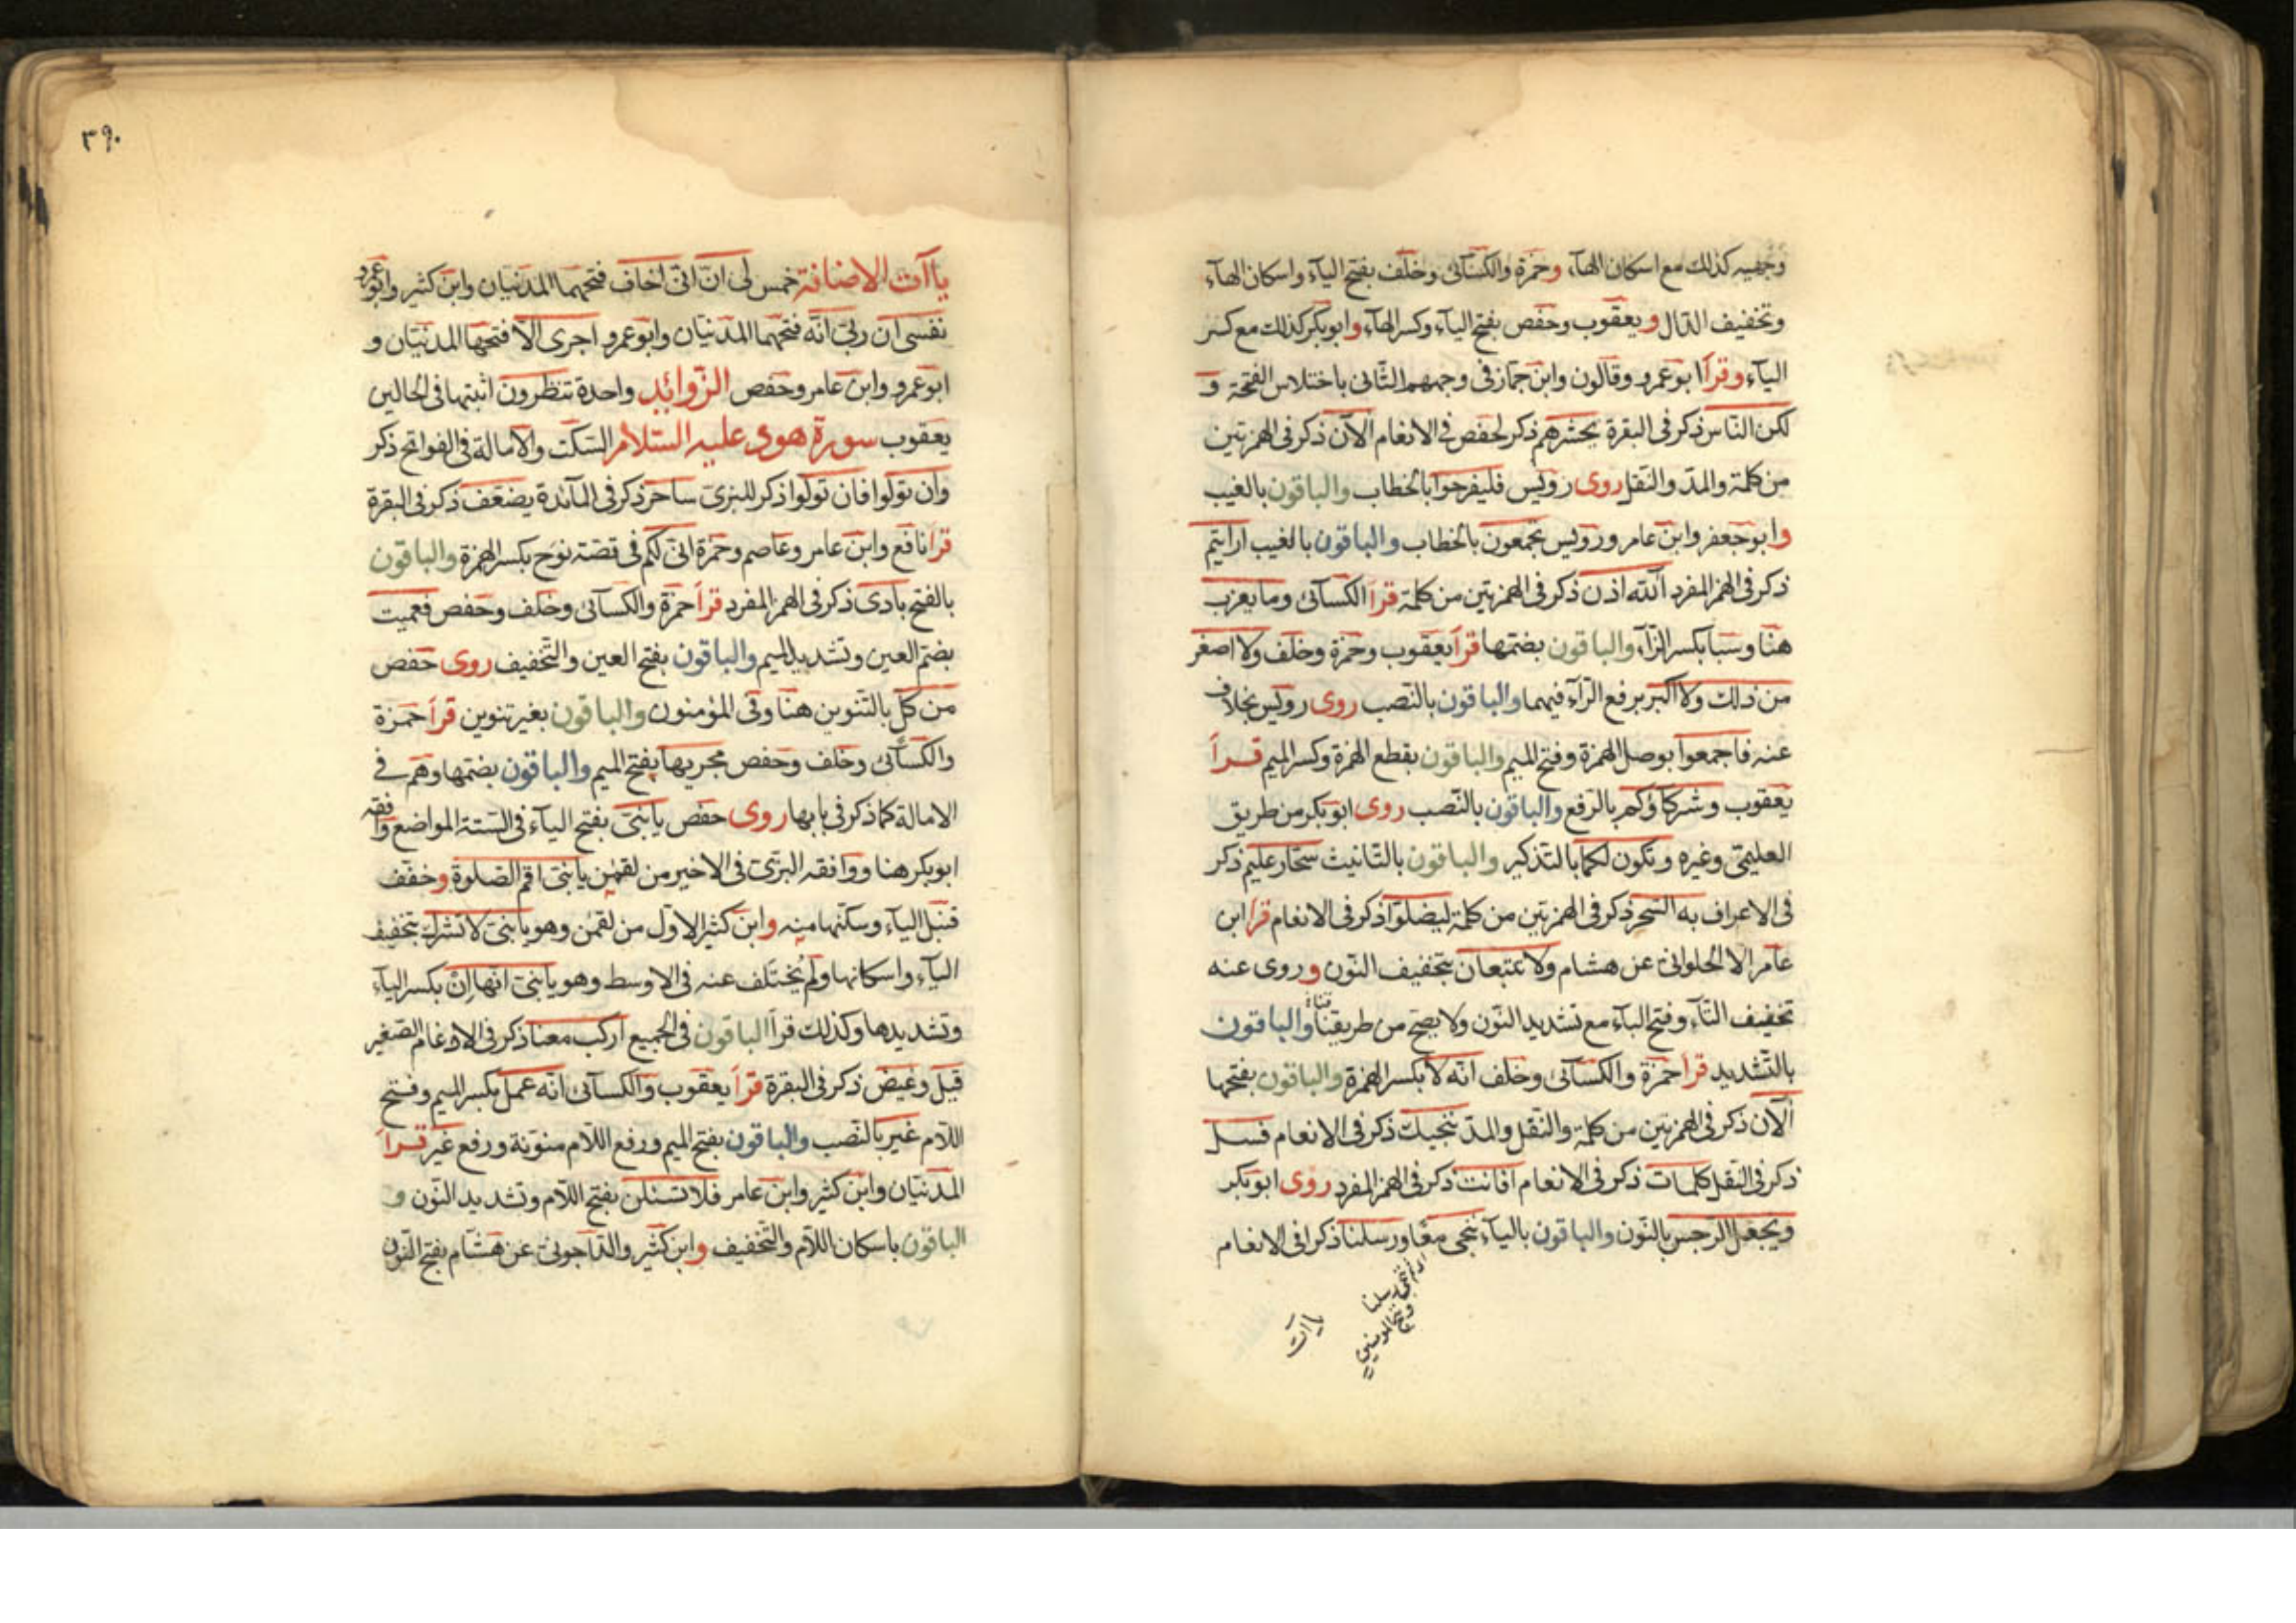 وجهيه كذلك مع اسكان الهاء وحمزة والكسآئى وخلف بفتح اليآء واسكان الهآء
وتخفيف الدال ويعقوب وحفص بفتح اليآء وكسر الهآء وابوبكر كذلك مع كسر
اليآء وقرأ ابوعمرو وقالون وابن جماز فى وجههم الثانى باختلاس الفتحة و
لكن الناس ذكر فى البقرة يحشرهم ذكر لحفص فى الانعام الآن ذكر فى الهمزتين
من كلمة والمد والنقل روى رويس فليفرحوا بالخطاب والباقون بالغيب
وابوجعفر وابن عامر ورويس تجمعون بالخطاب والباقون بالغيب ارايتم
ذكر فى الهمز المفرد آلله اذن ذكر فى الهمزتين من كلمة قرأ الكسآئى وما يعزب
هنا وسبا بكسر الزآء والباقون بضمها قرأ يعقوب وحمزة وخلف ولا اصغر
من ذلك ولا اكبر برفع الرآء فيهما والباقون بالنصب روى رويس بخلاف
عنه فاجمعوا بوصل الهمزة وفتح الميم والباقون بقطع الهمزة وكسر الميم قرأ
يعقوب وشركاؤكم بالرفع والباقون بالنصب روى ابوبكر من طريق
العليمى وغيره ويكون لكما بالتذكير والباقون بالتانيث سحار عليم ذكر
فى الاعراف به السحر ذكر فى الهمزتين من كلمة ليضلوا ذكر فى الانعام قرأ ابن
عامر الا الحلوانى عن هشام ولا تتبعان بتخفيف النون وروى عنه
تخفيف التآء وفتح البآء مع تشديد النون ولا يصح من طريقنا والباقون
بالتشديد قرأ حمزة والكسآئى وخلف انه لا بكسر الهمزة والباقون بفتحها
آلآن ذكر فى الهمزتين من كلمة والنقل والمد ننجيك ذكر فى الانعام فسل
ذكر فى النقل كلمات ذكر فى الانعام افانت ذكر فى الهمز المفرد روى ابوبكر
ويجعل الرجس بالنون والباقون باليآء ننجى معا ورسلنا ذكرا فى الانعام
ياآت
ياآت الاضافة خمس لى ان انى اخاف فتحهما المدنيان وابن كثير وابوعمرو
نفسى ان ربى انه فتحهما المدنيان وابوعمرو اجرى الا فتحها المدنيان و
ابوعمرو وابن عامر وحفص الزوائد واحدة تنظرون اثبتها فى الحالين
يعقوب سورة هود عليه السلام السكت والامالة فى الفواتح ذكر
وان تولوا فان تولوا ذكر للبزى ساحر ذكر فى المآئدة يضعف ذكر فى البقرة
قرأ نافع وابن عامر وعاصم وحمزة انى لكم فى قصة نوح بكسر الهمزة والباقون
بالفتح بادى ذكر فى الهمز المفرد قرأ حمزة والكسآئى وخلف وحفص فعميت
بضم العين وتشديد الميم والباقون بفتح العين والتخفيف روى حفص
من كل بالتنوين هنا وفى المؤمنون والباقون بغير تنوين قرأ حمزة
والكسآئى وخلف وحفص مجريها بفتح الميم والباقون بضمها وهم فى
الامالة كما ذكر فى بابها روى حفص يابنى بفتح اليآء فى الستة المواضع وافقه
ابوبكر هنا ووافقه البزى فى الاخير من لقمن يابنى اقم الصلوة وخفف
قنبل اليآء وسكنها منه وابن كثير الاول من لقمن وهو يابنى لا تشرك بتخفيف
اليآء واسكانها ولم يختلف عنه فى الاوسط وهو يابنى انها ان بكسر اليآء
وتشديدها وكذلك قرأ الباقون فى الجميع اركب معنا ذكر فى الادغام الصغير
قيل وغيض ذكر فى البقرة قرأ يعقوب والكسآئى انه عمل بكسر الميم وفتح
اللآم غير بالنصب والباقون بفتح الميم ورفع اللآم منونة ورفع غير قرأ
المدنيان وابن كثير وابن عامر فلا تسئلن بفتح اللآم وتشديد النون و
الباقون باسكان اللآم والتخفيف وابن كثير والداجونى عن هشام بفتح النون
٣٩٠